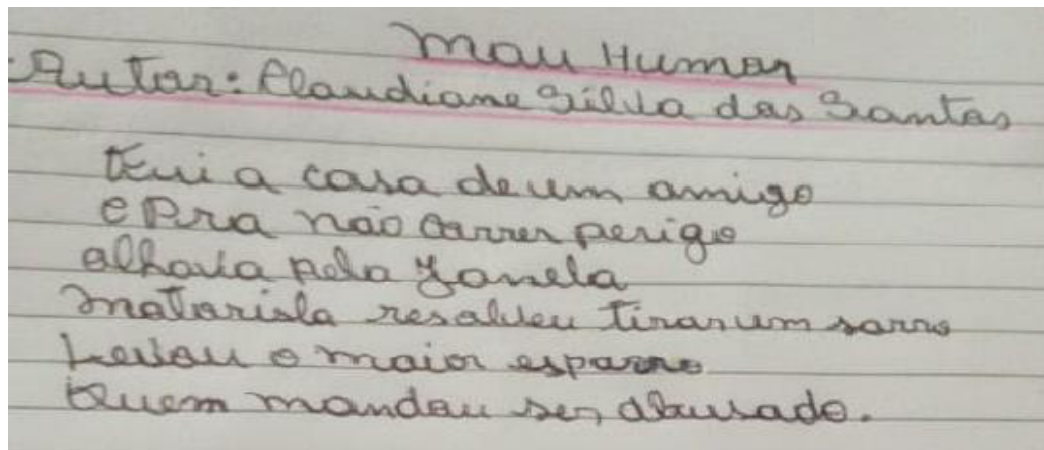 Mau Humor
Autor: Claudiane Silva dos Santos
Fui a casa de um amigo
e Pra não correr perigo
olhava pela Janela
motorista resolveu tirar um sarro
Levou o maior esparro
Quem mandou ser abusado.